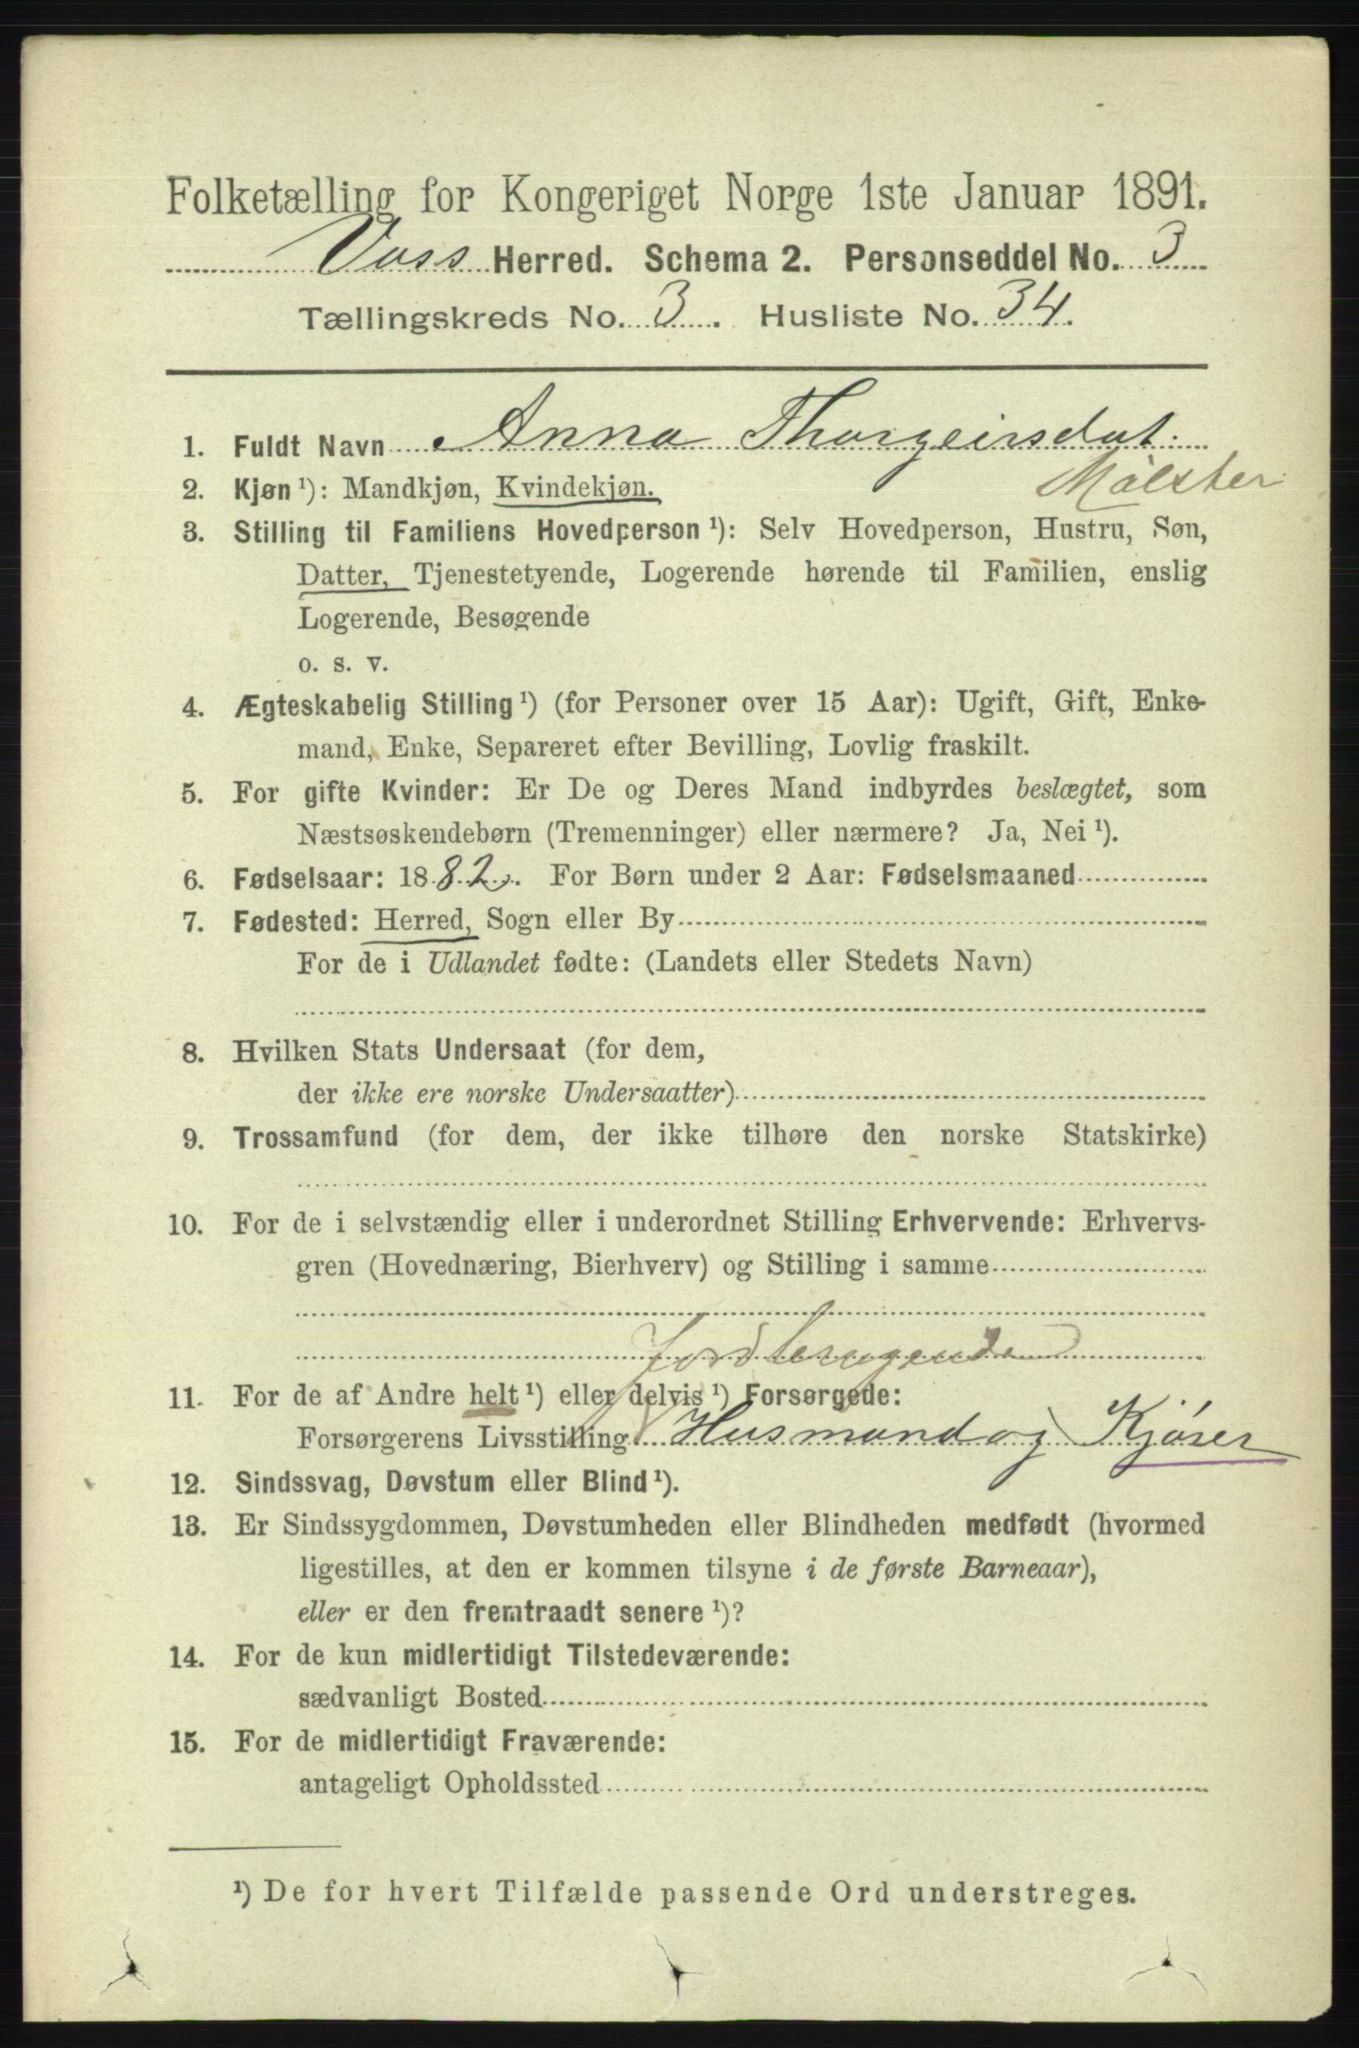 Folketælling for Kongeriget Norge 1ste Januar 1891.
Voss Herred. Schema 2. Personseddel No. 3
Tællingskreds No. 3. Husliste No. 34.
1. Fuldt Navn Anna Thorgeirsdat.
Mölster
2. Kjøn¹): Mandkjøn, Kvindekjøn.
3. Stilling til Familiens Hovedperson¹): Selv Hovedperson, Hustru, Søn,
Datter, Tjenestetyende, Logerende hørende til Familien, enslig
Logerende, Besøgende
o. s. v.
4. Ægteskabelig Stilling¹) (for Personer over 15 Aar): Ugift, Gift, Enke-
mand, Enke, Separeret efter Bevilling, Lovlig fraskilt.
5. For gifte Kvinder: Er De og Deres Mand indbyrdes beslægtet, som
Næstsøskendebørn (Tremenninger) eller nærmere? Ja, Nei¹).
6. Fødselsaar: 1882. For Børn under 2 Aar: Fødselsmaaned
7. Fødested: Herred, Sogn eller By
For de i Udlandet fødte: (Landets eller Stedets Navn)
8. Hvilken Stats Undersaat (for dem,
der ikke ere norske Undersaatter)
9. Trossamfund (for dem, der ikke tilhøre den norske Statskirke)
10. For de i selvstændig eller i underordnet Stilling Erhvervende: Erhvervs-
gren (Hovednæring, Bierhverv) og Stilling i samme
11. For de af Andre helt¹) eller delvis¹) Forsørgede:
Forsørgerens Livsstilling Husmand og Kjörer
12. Sindssvag, Døvstum eller Blind¹).
13. Er Sindssygdommen, Døvstumheden eller Blindheden medfødt (hvormed
ligestilles, at den er kommen tilsyne i de første Barneaar),
eller er den fremtraadt senere¹)?
14. For de kun midlertidigt Tilstedeværende:
sædvanligt Bosted
15. For de midlertidigt Fraværende:
antageligt Opholdssted
¹) De for hvert Tilfælde passende Ord understreges.